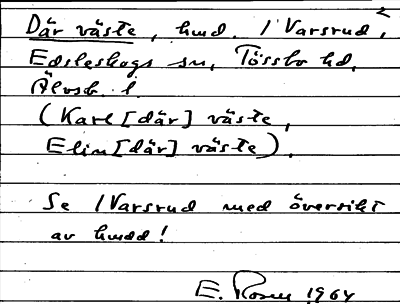 Där väste, hmd. 1 Varsrud 2,
Edsleskogs sn, Tössbo hd,
Älvsb. l.
(Karl [där] väste,
Elin [där] väste).
Se 1 Varsrud med översikt
av hmdd!
E. Rosén 1964